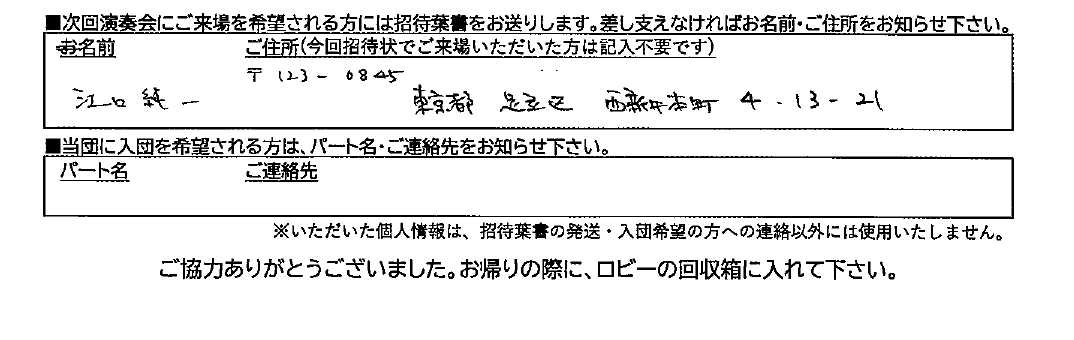 ■次回演奏会にご来場を希望される方には招待葉書をお送りします。差し支えなければお名前・ご住所をお知らせ下さい。
お名前 ご住所(今回招待状でご来場いただいた方は記入不要です)
〒123-0845
江口純一 東京都 足立区 西新井本町 4-13-21
■当団に入団を希望される方は、パート名・ご連絡先をお知らせ下さい。
パート名 ご連絡先
※いただいた個人情報は、招待葉書の発送・入団希望の方への連絡以外には使用いたしません。
ご協力ありがとうございました。お帰りの際に、ロビーの回収箱に入れて下さい。